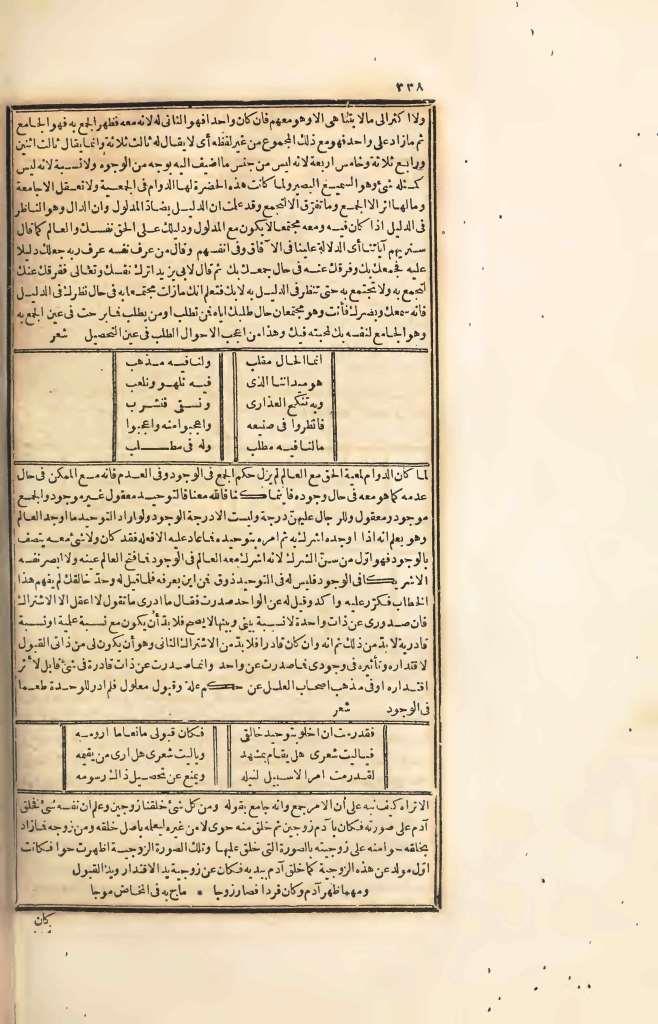 ٣٣٨
ولا أكثر الى مالا يتناهى الا وهو معهم فان كان واحدا فهو الثانى له لانه معه فظهر الجمع به فهو الجامع
ثم مازاد على واحد فهو مع ذلك المجموع من غير لفظه أى لا يقال له ثالث ثلاثة وانما يقال ثالث اثنين
ورابع ثلاثة وخامس اربعة لانه ليس من جنس ما اضيف اليه بوجه من الوجوه ولا نسبة لانه ليس
كمثله شئ وهو السميع البصير ولما كانت هذه الحضرة لها الدوام فى الجمعية ولا تعقل الا جامعة
وما لها اثر الا الجمع وما تفرق الا لتجمع وقد علمت ان الدليل يضاد المدلول وان الدال وهو الناظر
فى الدليل اذا كان فيه ومعه مجتمعا لا يكون مع المدلول ودليلك على الحق نفسك والعالم كما قال
سنريهم آياتنا أى الدلالة علينا فى الآفاق وفى انفسهم وقال من عرف نفسه عرف ربه جعلك دليلا
عليه فجمعك بك وفرقك عنه فى حال جمعك بك ثم قال لابى يزيد اترك نفسك وتعالى ففرقك عنك
لتجمع به ولا تجتمع به حتى تنظر فى الدليل به لا بك فتعلم انك مازلت مجتمعا به فى حال نظرك فى الدليل
فانه سمعك وبصرك فأنت وهو مجتمعان حال طلبك اياه فمن تطلب او من يطلب فما برحت فى عين الجمع به
وهو الجامع لنفسه بك لمحبته فيك وهذا من اعجب الاحوال الطلب فى عين التحصيل شعر
انما الحال مقلب ولنا فيه مذهب
هو ميداننا الذى فيه نلهو ونلعب
وبه تنكح العذارى ونسقى فنشرب
فانظروا فى صنيعه واعجبوا منه واعجبوا
مالنا فيه مطلب وله فى مطلب
لما كان الدوام لمعية الحق مع العالم لم يزل حكم الجمع فى الوجود وفى العدم فانه مع الممكن فى حال
عدمه كما هو معه فى حال وجوده فأينما كنا فالله معنا فالتوحيد معقول غير موجود والجمع
موجود ومعقول وللرجال عليهن درجة وليست الا درجة الوجود ولو اراد التوحيد ما اوجد العالم
وهو يعلم انه اذا اوجده اشرك به ثم امره بتوحيده فما عاد عليه الا فعله فقد كان ولا شئ معه يتصف
بالوجود فهو اول من سن الشرك لانه اشرك معه العالم فى الوجود فما فتح العالم عينه ولا ابصر نفسه
الا شريكا فى الوجود فليس له فى التوحيد ذوق فمن اين يعرفه فلما قيل له وحد خالقك لم يفهم هذا
الخطاب فكرر عليه واكد وقيل له عن الواحد صدرت فقال ما ادرى ما تقول لا اعقل الا الاشتراك
فان صدورى عن ذات واحدة لا نسبة بينى وبينها لا يصح فلا بد أن يكون مع نسبة علمية او نسبة
قادرية لا بد من ذلك ثم انه وان كان قادرا فلا بد من الاشتراك الثانى وهو أن يكون لى من ذاتى القبول
لاقتداره وتأثيره فى وجودى فما صدرت عن واحد وانما صدرت عن ذات قادرة فى شئ قابل لأثر
اقتداره او فى مذهب اصحاب العلل عن حكم علة وقبول معلول فلم ادر للوحدة طعما
فى الوجود شعر
فقد رمت ان اخلو بتوحيد خالقى فكان قبولى مانعا ما ارومه
فياليت شعرى هل يقام بمشهد وياليت شعرى هل ارى من يقيمه
لقد رمت امرا لا سبيل لنيله ويمنع عن تحصيل ذاك رسومه
الا تراه كيف نبه على أن الامر جمع وانه جامع بقوله ومن كل شئ خلقنا زوجين وعلم ان نفسه شئ فخلق
آدم على صورته فكان با آدم زوجين ثم خلق منه حوى لا من غيره ليعلمه بأصل خلقه ومن زوجه فما زاد
بخلقه حوا منه على زوجيته بالصورة التى خلق عليها وتلك الصورة الزوجية اظهرت حوا فكانت
اول مولد عن هذه الزوجية كما خلق آدم بيديه فكان عن زوجية يد الاقتدار ويد القبول
وبهما ظهر آدم وكان فردا فصار زوجا * ماج به فى المخاض موجا
كان